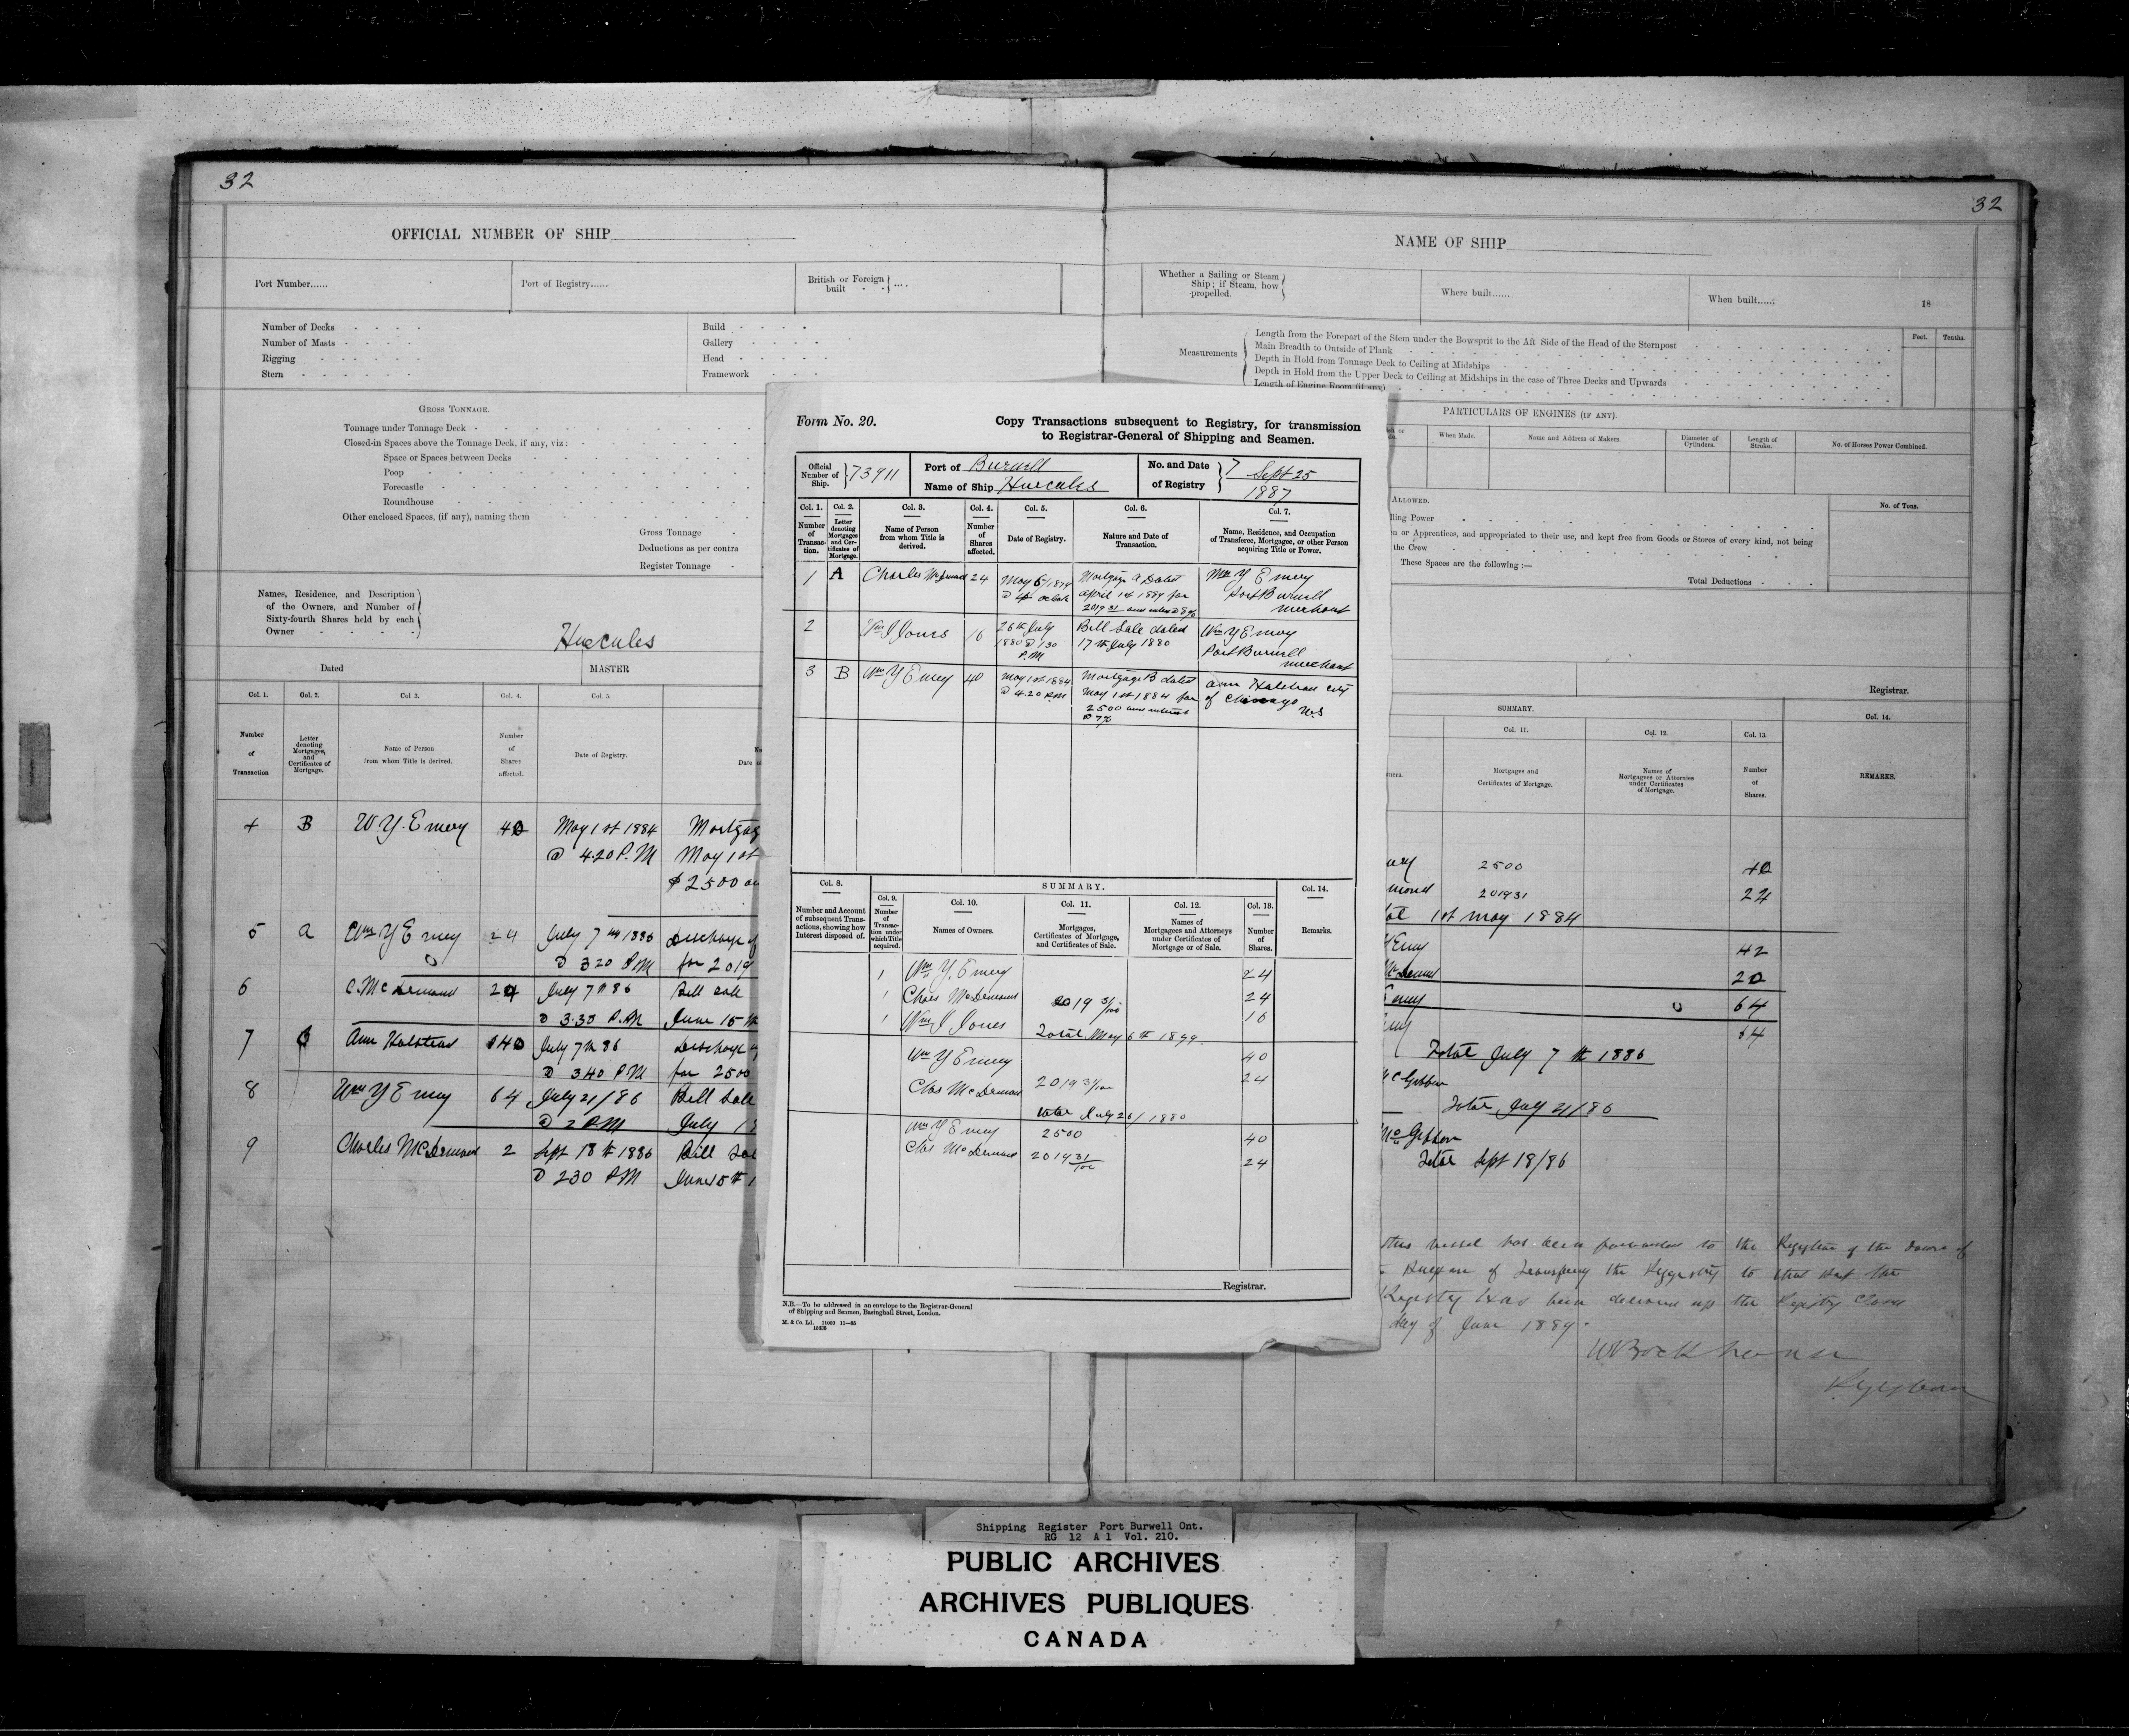 32
32
OFFICIAL NUMBER OF SHIP
NAME OF SHIP
Port Number......
Port of Registry......
British or Foreign built
Whether a Sailing or Steam Ship; if Steam, how propelled.
Where built......
When built......
18
Number of Decks
Number of Masts
Rigging
Stern
Build
Gallery
Head
Framework
Measurements
Length from the Forepart of the Stem under the Bowsprit to the Aft Side of the Head of the Sternpost
Main Breadth to Outside of Plank
Depth in Hold from Tonnage Deck to Ceiling at Midships
Depth in Hold from the Upper Deck to Ceiling at Midships in the case of Three Decks and Upwards
Length of Engine Room (if any)
Feet.
Tenths.
GROSS TONNAGE.
Tonnage under Tonnage Deck
Closed-in Spaces above the Tonnage Deck, if any, viz:
Space or Spaces between Decks
Poop
Forecastle
Roundhouse
Other enclosed Spaces, (if any), naming them
Gross Tonnage
Deductions as per contra
Register Tonnage
PARTICULARS OF ENGINES (IF ANY).
When Made.
Name and Address of Makers.
Diameter of Cylinders.
Length of Stroke.
No. of Horses Power Combined.
ALLOWED.
No. of Tons.
lling Power
n or Apprentices, and appropriated to their use, and kept free from Goods or Stores of every kind, not being
the Crew
These Spaces are the following :—
Total Deductions
Names, Residence, and Description
of the Owners, and Number of
Sixty-fourth Shares held by each
Owner
Hercules
Dated
MASTER
Registrar.
Col. 1.
Col. 2.
Col 3.
Col. 4.
Col. 5.
Number of Transaction
Letter denoting Mortgages, and Certificates of Mortgage.
Name of Person from whom Title is derived.
Number of Shares affected.
Date of Registry.
SUMMARY.
Col. 11.
Col. 12.
Col. 13.
Col. 14.
Mortgages and Certificates of Mortgage.
Names of Mortgagees or Attornies under Certificates of Mortgage.
Number of Shares.
REMARKS.
4 B W.Y. Emery 40 May 1st 1884 Mortgag
@ 4.20 P.M May 1st
$2500 an
5 a Wm Y Emery 24 July 7th 1886 Discharge of
@ 320 P.M for 2019
6 C. McDemand 24 July 7th 86 Bill Sale
@ 3.30 P.M June 15th
7 Ann Halstead 40 July 7th 86 Discharge
@ 340 P.M for 2500
8 Wm Y Emery 64 July 21/86 Bill Sale
@ 2 P.M July 1
9 Charles McDemand 2 Sept 18th 1886 Bill Sal
@ 230 P.M June 15th
2500 40
201931 24
1st May 1884
Emery 42
20
64
64
Total July 7th 1886
McGibbon
Total July 21/86
McGibbon
Total Sept 18/86
this vessel has been forwarded to the Registrar of the
of the Registry to that Port the
has been the Registry Closed
day of June 1889.
Registrar
Form No. 20.
Copy Transactions subsequent to Registry, for transmission
to Registrar-General of Shipping and Seamen.
Official Number of Ship.
73911
Port of Burwell
Name of Ship Hercules
No. and Date of Registry
7 Sept 25
1887
Col. 1.
Col. 2.
Col. 3.
Col. 4.
Col. 5.
Col. 6.
Col. 7.
Number of Transaction.
Letter denoting Mortgages and Certificates of Mortgage.
Name of Person from whom Title is derived.
Number of Shares affected.
Date of Registry.
Nature and Date of Transaction.
Name, Residence, and Occupation of Transferee, Mortgagee, or other Person acquiring Title or Power.
1 A Charles McDemand 24 May 6 Mortgage A Dated Wm Y Emery
April 1st for Port Burwell
2019 31 and interest @ 8% merchant
2 Wm J Jones 16 26th July Bill Sale dated Wm Y Emery
1880 @ 1 30 17th July 1880 Port Burwell
P.M merchant
3 B Wm Y Emery 40 May 1st 1884 Mortgage B dated Ann Halstead City
@ 4.20 P.M May 1st 1884 for of Chicago
2500 and interest U.S
@ 7%
Col. 8.
SUMMARY.
Col. 14.
Number and Account of subsequent Transactions, showing how Interest disposed of.
Col. 9.
Number of Transaction under which Title acquired.
Col. 10.
Names of Owners.
Col. 11.
Mortgages, Certificates of Mortgage, and Certificates of Sale.
Col. 12.
Names of Mortgagees and Attorneys under Certificates of Mortgage or of Sale.
Col. 13.
Number of Shares.
Remarks.
1 Wm Y. Emery 24
1 Chas McDemand 2019 31/100 24
1 Wm J Jones 16
Total May 6th
Wm Y Emery 40
Chas McDemand 2019 31/100 24
Total July 26/1880
Wm Y Emery 2500 40
Chas McDemand 2019 31/100 24
Registrar.
N.B.—To be addressed in an envelope to the Registrar-General
of Shipping and Seamen, Basinghall Street, London.
M. & Co. Ld. 11000 11—85
Shipping Register Port Burwell Ont.
RG 12 A 1 Vol. 210.
PUBLIC ARCHIVES
ARCHIVES PUBLIQUES
CANADA